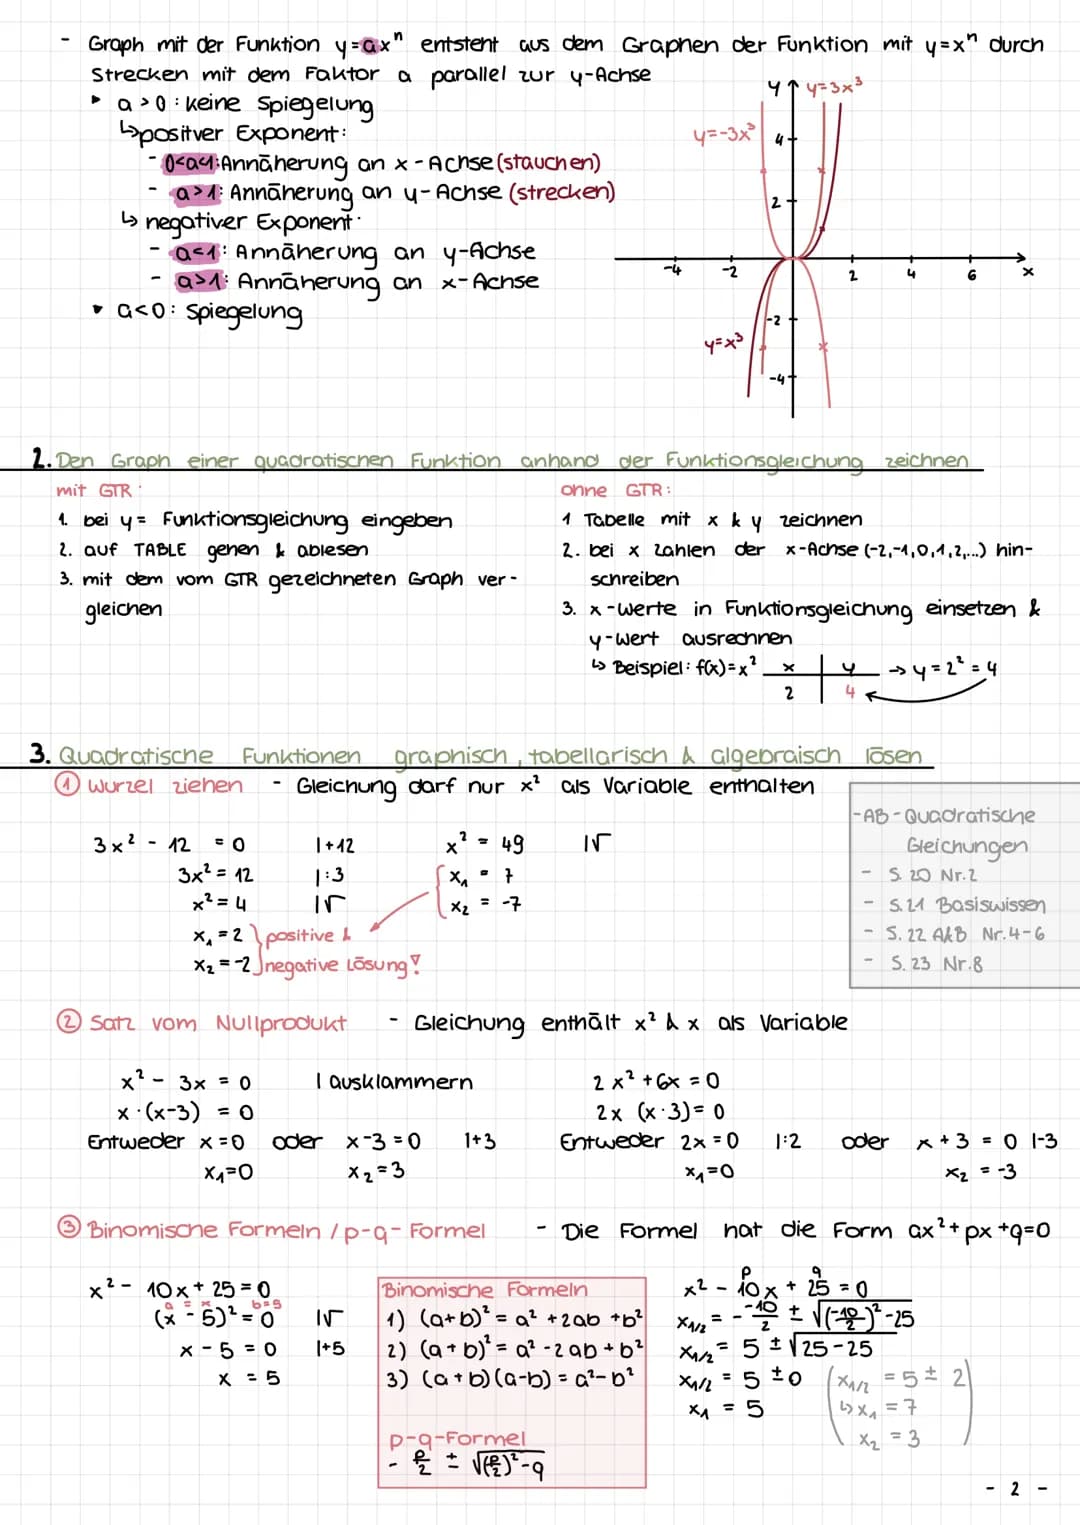 - Graph mit der Funktion y=axⁿ entsteht aus dem Graphen der Funktion mit y=xⁿ durch
Strecken mit dem Faktor a parallel zur y-Achse
▸ a>0: keine Spiegelung
↳positver Exponent:
- 0<a<1: Annäherung an x-Achse (stauchen)
- a>1: Annäherung an y-Achse (strecken)
↳ negativer Exponent:
- a<1: Annäherung an y-Achse
- a>1: Annäherung an x-Achse
▸ a<0: Spiegelung
y
y=3x³
y=-3x³
4
2
-4 -2 2 4 6 x
-2
y=x³
-4
2. Den Graph einer quadratischen Funktion anhand der Funktionsgleichung zeichnen
mit GTR:
1. bei y= Funktionsgleichung eingeben
2. auf TABLE gehen & ablesen
3. mit dem vom GTR gezeichneten Graph ver-
gleichen
ohne GTR:
1 Tabelle mit x & y zeichnen
2. bei x Zahlen der x-Achse (-2,-1,0,1,2,...) hin-
schreiben
3. x-Werte in Funktionsgleichung einsetzen &
y-Wert ausrechnen
↳ Beispiel: f(x)=x² x y → y=2²=4
2 4
3. Quadratische Funktionen graphisch, tabellarisch & algebraisch lösen
① Wurzel ziehen - Gleichung darf nur x² als Variable enthalten
3x² - 12 = 0 |+12
3x² = 12 |:3
x² = 4 |√
x₁ = 2 positive &
x₂ = -2 negative Lösung!
x² = 49 |√
x₁ = 7
x₂ = -7
-AB-Quadratische
Gleichungen
- S. 20 Nr.2
- S.21 Basiswissen
- S.22 A&B Nr.4-6
- S.23 Nr.8
② Satz vom Nullprodukt - Gleichung enthält x² & x als Variable
x² - 3x = 0 | ausklammern
x·(x-3) = 0
Entweder x=0 oder x-3=0 |+3
x₁=0 x₂=3
2x²+6x=0
2x (x·3)=0
Entweder 2x=0 |:2 oder x+3=0 |-3
x₁=0 x₂=-3
③ Binomische Formeln / p-q-Formel - Die Formel hat die Form ax²+px+q=0
x² - 10x + 25 = 0
a = x b=5
(x - 5)² = 0 |√
x - 5 = 0 |+5
x = 5
Binomische Formeln
1) (a+b)² = a² + 2ab + b²
2) (a+b)² = a² - 2ab + b²
3) (a+b)(a-b) = a² - b²
p-q-Formel
- p/2 ± √(p/2)²-q
p q
x² - 10x + 25 = 0
x₁/₂ = - -10/2 ± √(-10/2)²-25
x₁/₂ = 5 ± √25-25
x₁/₂ = 5 ± 0
x₁ = 5
x₁/₂ = 5 ± 2
↳x₁ = 7
x₂ = 3
- 2 -